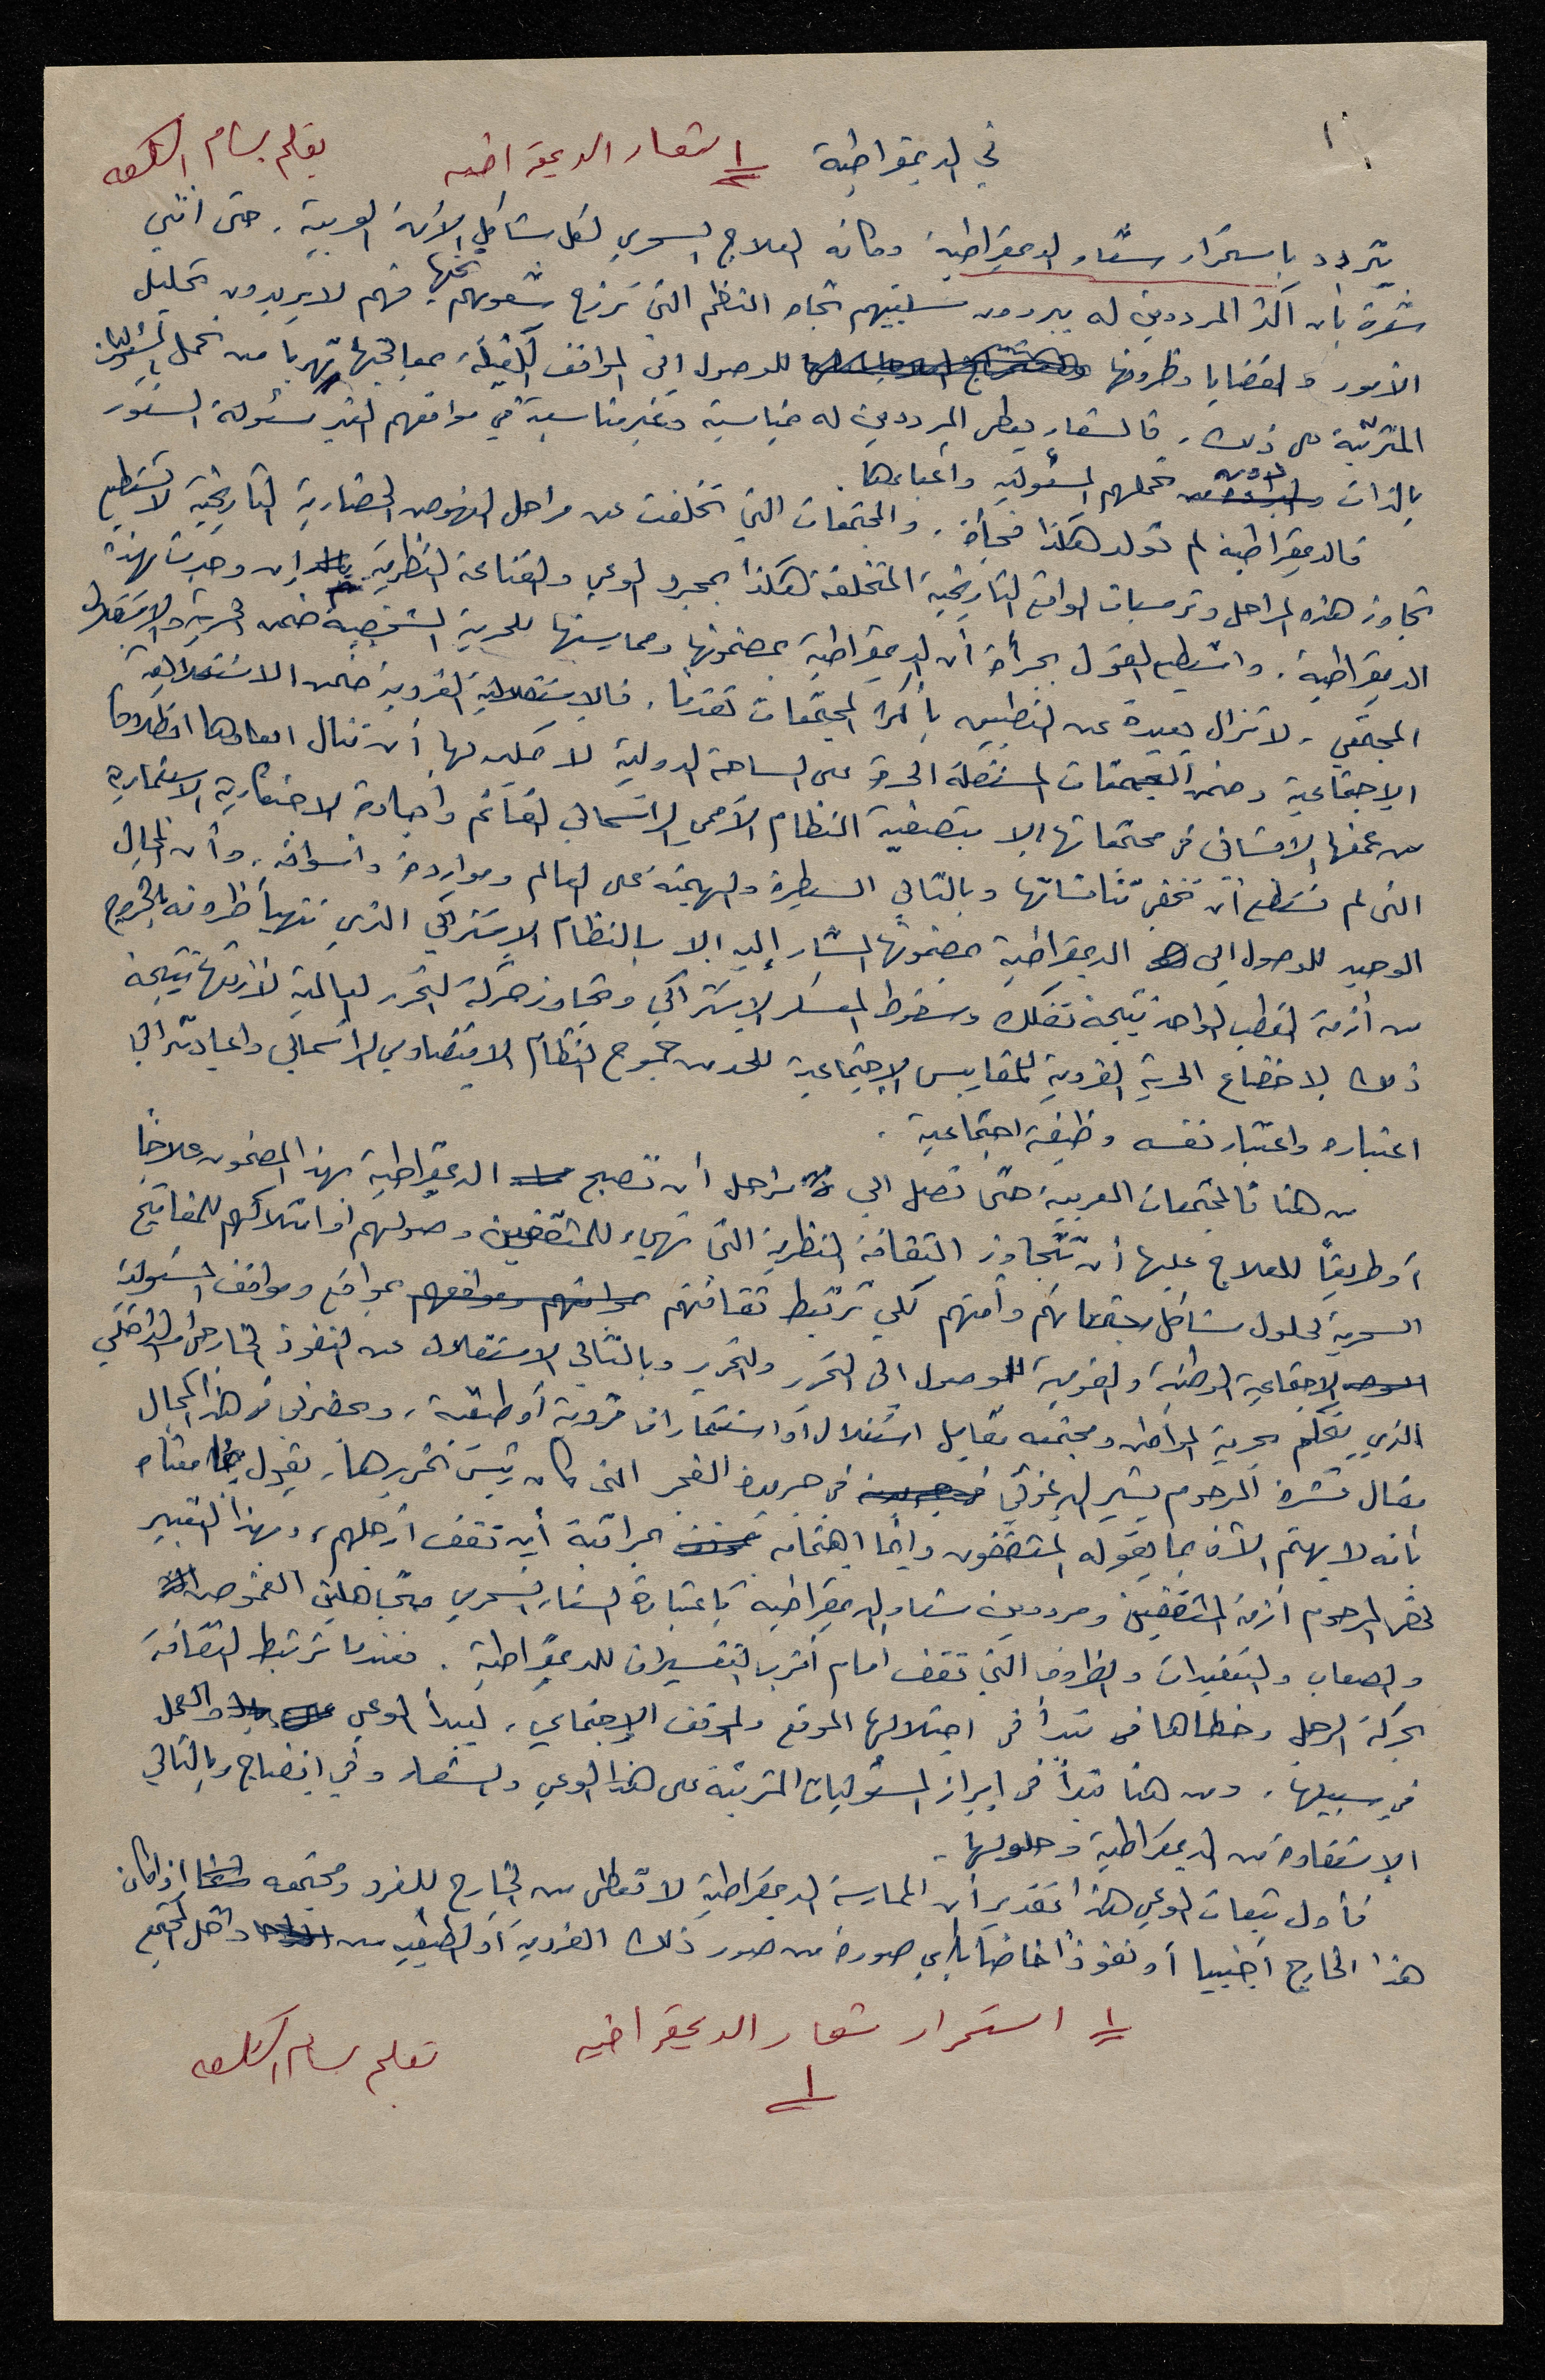 ١
في الديمقراطية ١ شعار الديمقراطيه بقلم بسام
يتردد باستمرار شعار الديمقراطية وكأنه العلاج السحري لكل مشاكل الأمة العربية. حتى أنني
شعرت بأن أكثر المرددين له يبررون سلبيتهم تجاه النظم التي ترزح شعوبهم تحتها فهم لا يريدون تحليل
الأمور والقضايا وظروفها للوصول الى المواقف الكفيلة بمعالجتها تهربا من تحمل المسئوليات
المترتبة على ذلك. فالشعار يعطي المرددين له حساسية وغير مناسبة في مواقفهم الغير مسئولة الشعور
بالذات دون تحملهم المسئولية وأعباءها.
فالديمقراطية لم تولد هكذا فجأة. والمجتمعات التي تخلفت عن مراحل النهوض الحضارية التاريخية لا تستطيع
تجاوز هذه المراحل وترسبات الواقع التاريخية المتخلفة هكذا بمجرد الوعي والقناعة النظرية إن وجدت بهذه
الديمقراطية. واستطيع القول بجرأة أن الديمقراطية بمضمونها وممارستها للحرية الشخصية ضمن الحرية والاستقلال
المجتمعي، لا تزال بعيدة عن التطبيق بأكثر المجتمعات تقدما. فالاستقلالية الفردية ضمن الاستقلالية
الاجتماعية وضمن المجتمعات المستقلة الحرة على الساحة الدولية لا يمكن لها أن تنال ابعادها انطلاقا
من عمقها الانساني في مجتمعاتها إلا بتصفية النظام الأممي الرأسمالي القائم وأجهزته الاحتكارية الاستعمارية
التي لم تستطع أن تخفي تناقضاتها وبالتالي السيطرة والهيمنة على العالم وموارده وأسواقه، وأن المجال
الوحيد للوصول الى الديمقراطية بمضمونها المشار إليه إلا بالنظام الاشتراكي الذي تتهيأ ظروفه بالخروج
من أزمة القطب الواحد نتيجة تفكك وسقوط المعسكر الاشتراكي وتجاوز حركة التحرر العالمية لأزمتها نتيجة
ذلك لاخضاع الحرية الفردية للمقاييس الاجتماعية للحد من جموح النظام الاقتصادي الرأسمالي واعادته الى
اعتباره واعتبار نفسه وظيفة اجتماعية.
من هنا فالمجتمعات العربية حتى تصل الى مراحل أن تصبح الديمقراطية بهذا المضمون علاجًا
أو طريقًا للعلاج عليها أن تتجاوز الثقافة النظرية التي تهيء للمثقفين وصولهم أو امتلاكهم للمفاتيح
السحرية لحلول مشاكل مجتمعاتهم وأمتهم لكي ترتبط ثقافتهم بمواقع ومواقف المسئولية
الاجتماعية الوطنية والقومية للوصول الى التحرر والتحرير وبالتالي الاستقلال عن النفوذ الخارجي والداخلي
الذي يتحكم بحرية المواطن ومجتمعه مقابل استغلال أو استثمارات فردية أو طبقية، ويحضرني في هذا المجال
مقال نشره المرحوم بشير البرغوثي في جريدة الفجر التي كان رئيس تحريرها، يقول ما معناه
بأنه لا يهتم الآن بما يقوله المثقفون وإنما اهتمامه بمراقبة أين تقف أرجلهم، وبهذا التعبير
لخص المرحوم أزمة المثقفين ومرددين شعار الديمقراطية باعتباره الشعار السحري متجاهلين الغموض
والصعاب والتعقيدات والظروف التي تقف امام أقرب التفسيرات للديمقراطية. فعندما ترتبط الثقافة
بحركة الرجل وخطاها في تبدأ في احتلالها الموقع والموقف الاجتماعي، ليبدأ الوعي والعمل
في سبيلها. ومن هنا تبدأ في إبراز المسئوليات المترتبة على هذا الوعي والشعار وفي إنضاج وبالتالي
الاستفادة من الديمقراطية وحلولها.
فأول تبعات الوعي هذا تقدير أن الممارسة الديمقراطية لا تعطى من الخارج للفرد ومجتمعه إذا كان
هذا الخارج أجنبيا أو نفوذًا خاضعًا بأي صورة من صور ذلك الفردية أو الطبقية من داخل المجتمع
١ استمرار شعار الديمقراطيه بقلم بسام
١